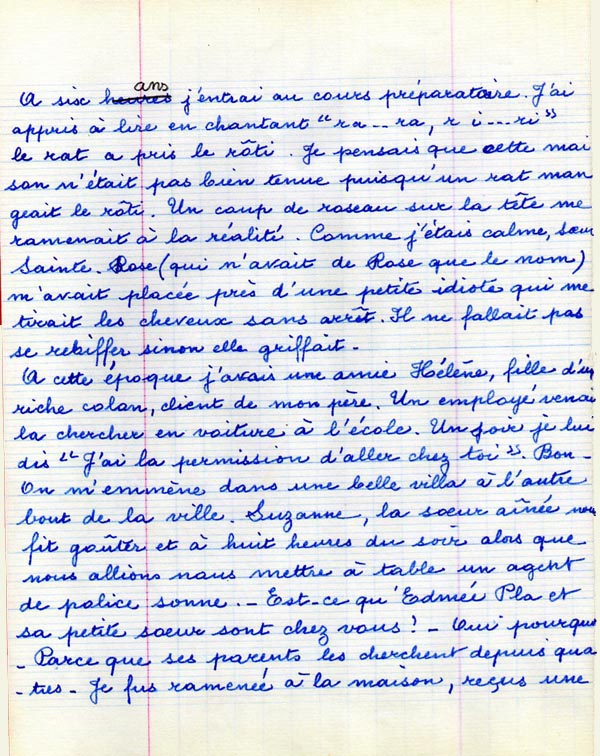 ans
A six heures j'entrai au cours préparatoire. J'ai
appris à lire en chantant "ra..ra, r i...ri"
le rat a pris le rôti. Je pensais que cette mai
son n'était pas bien tenue puisqu'un rat man
geait le rôti. Un coup de roseau sur la tête me
ramenait à la réalité. Comme j'étais calme, sœur
Sainte Rose (qui n'avait de Rose que le nom)
m'avait placée près d'une petite idiote qui me
tirait les cheveux sans arrêt. Il ne fallait pas
se rebiffer sinon elle griffait.
A cette époque j'avais une amie Hélène, fille d'un
riche colon, client de mon père. Un employé venai
la chercher en voiture à l'école. Un soir je lui
dis "J'ai la permission d'aller chez toi". Bon -
On m'emmène dans une belle villa à l'autre
bout de la ville. Suzanne, la sœur aînée nous
fit goûter et à huit heures du soir alors que
nous allions nous mettre à table un agent
de police sonne. - Est-ce qu'Edmée Pla et
sa petite sœur sont chez vous! - Oui pourquoi
- Parce que ses parents les cherchent depuis qua
-tres - Je fus ramenée à la maison, reçus une